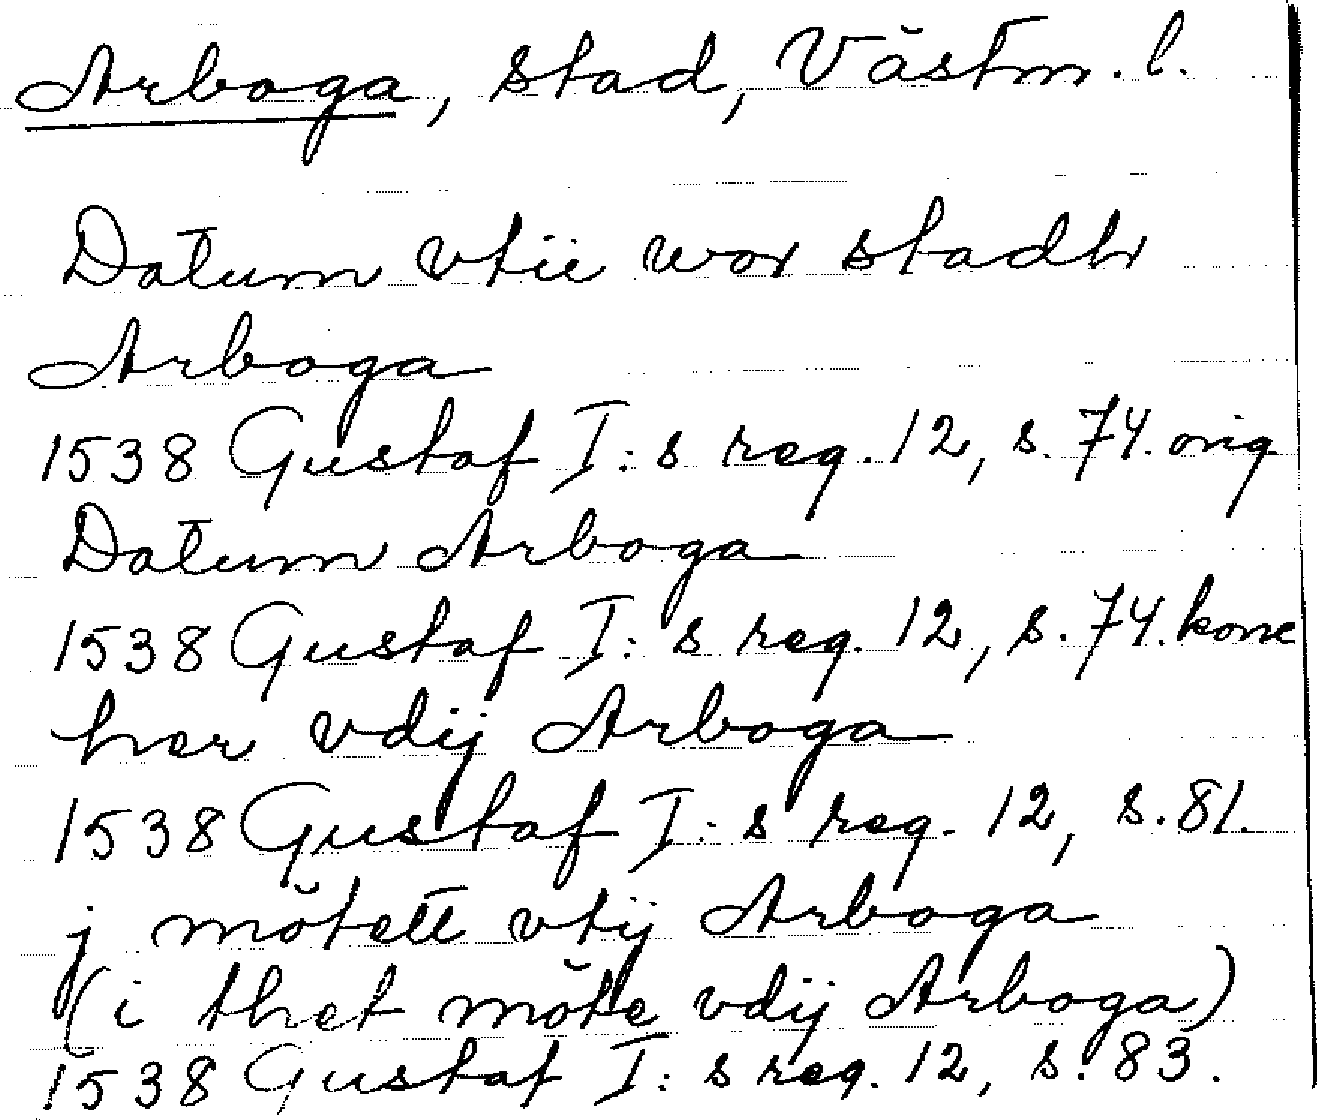 Arboga, stad, Västm. l.
Datum vtii wor stadh
Arboga
1538 Gustaf I:s reg. 12, s. 74. orig
Datum Arboga
1538 Gustaf I:s reg. 12, s. 74. konc
her vdij Arboga
1538 Gustaf I:s reg. 12, s. 81.
j mötett vtij Arboga
(i thet möte vdij Arboga)
1538 Gustaf I:s reg. 12, s. 83.